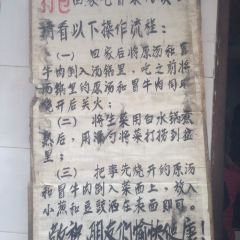 打包回家
请看以下操作流程：
（一）回家后将原汤和冒
牛肉倒入汤锅里，吃之前将
汤锅里的原汤和冒牛肉同
烧开后关火；
（二）将生菜用白水锅煮
熟后，用漏勺将菜打捞到盆
里；
（三）把事先烧开的原汤
和冒牛肉倒入菜面上，放入
小葱和豆豉洒在表面即可。
敬祝朋友们愉快健康！